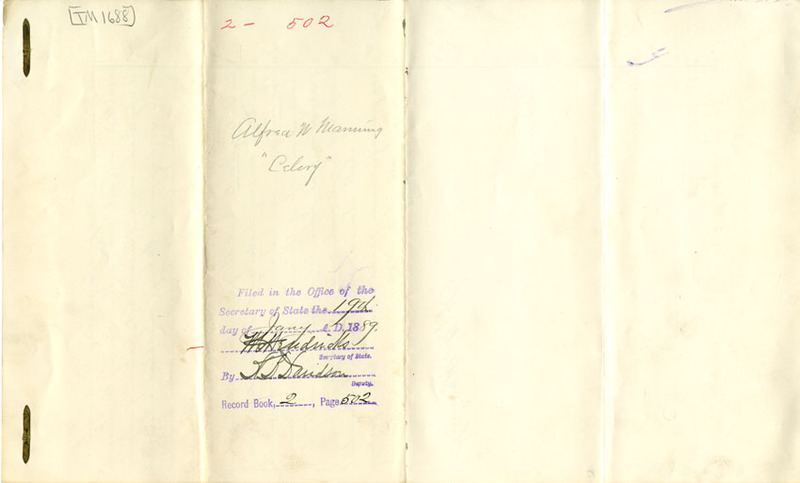 [TM 1688]
2 - 502
Alfred W Manning
"Celery"
Filed in the Office of the
Secretary of State the 19th
day of Jany A.D. 1889.
W C Hendricks
Secretary of State.
By Davidson
Deputy.
Record Book, 2, Page 502